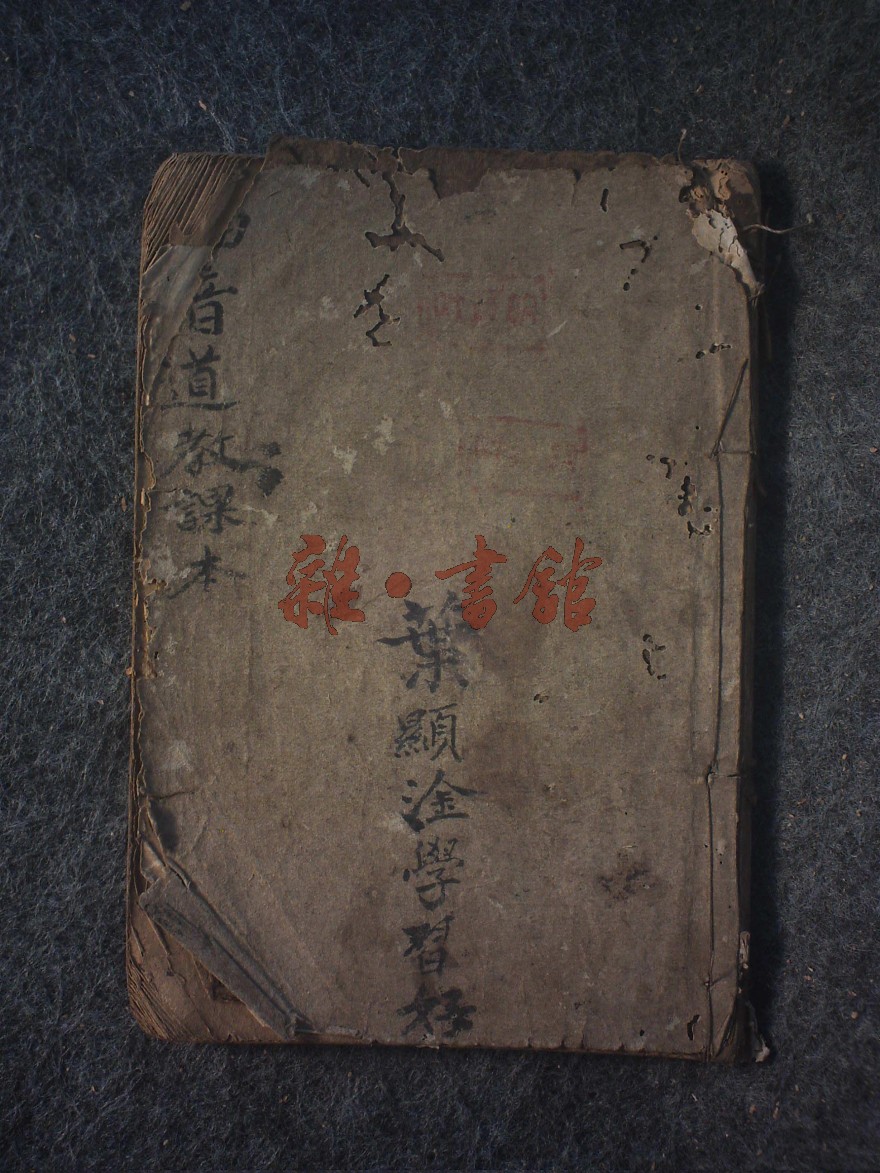 音道教課本
葉顯淦學習好
雜·書館